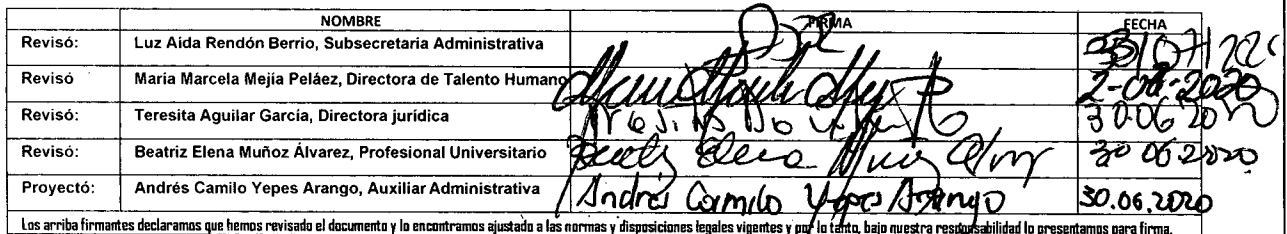 NOMBRE FIRMA FECHA
Revisó: Luz Aida Rendón Berrio, Subsecretaria Administrativa
Revisó María Marcela Mejía Peláez, Directora de Talento Humano
Revisó: Teresita Aguilar García, Directora jurídica 30.06 20
Revisó: Beatriz Elena Muñoz Álvarez, Profesional Universitario Beatriz Elena Muñoz 30 06 2020
Proyectó: Andrés Camilo Yepes Arango, Auxiliar Administrativa Andrés Camilo Yepes Arango 30.06.2020
Los arriba firmantes declaramos que hemos revisado el documento y lo encontramos ajustado a las normas y disposiciones legales vigentes y por lo tanto, bajo nuestra responsabilidad lo presentamos para firma.